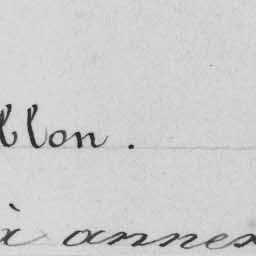 llon.
à annex